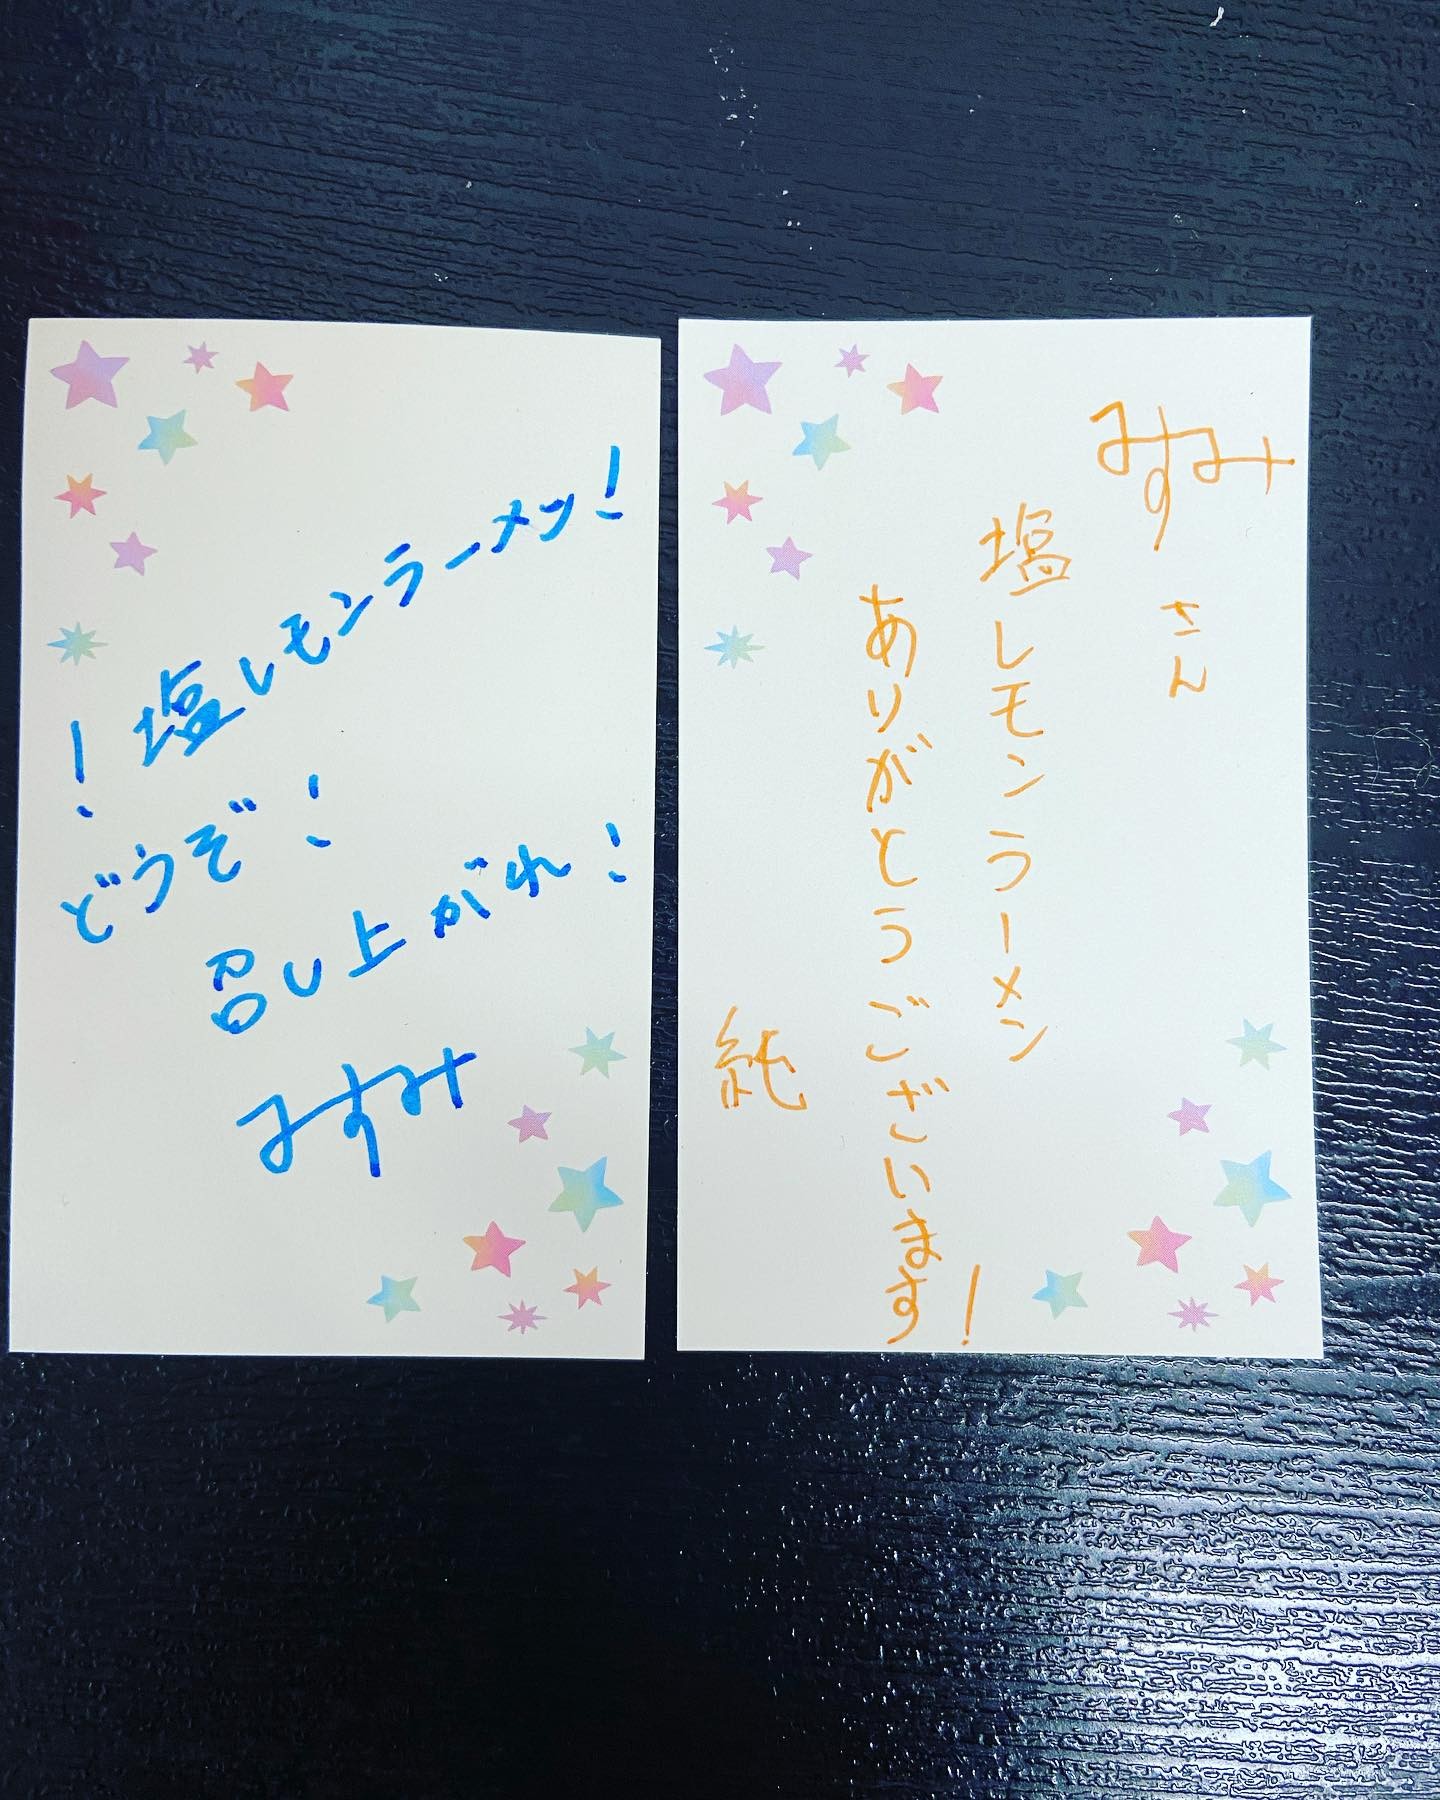 ！塩レモンラーメン！
どうぞ！
召し上がれ！
みすみ
みすみさん
塩レモンラーメン
ありがとうございます！
純